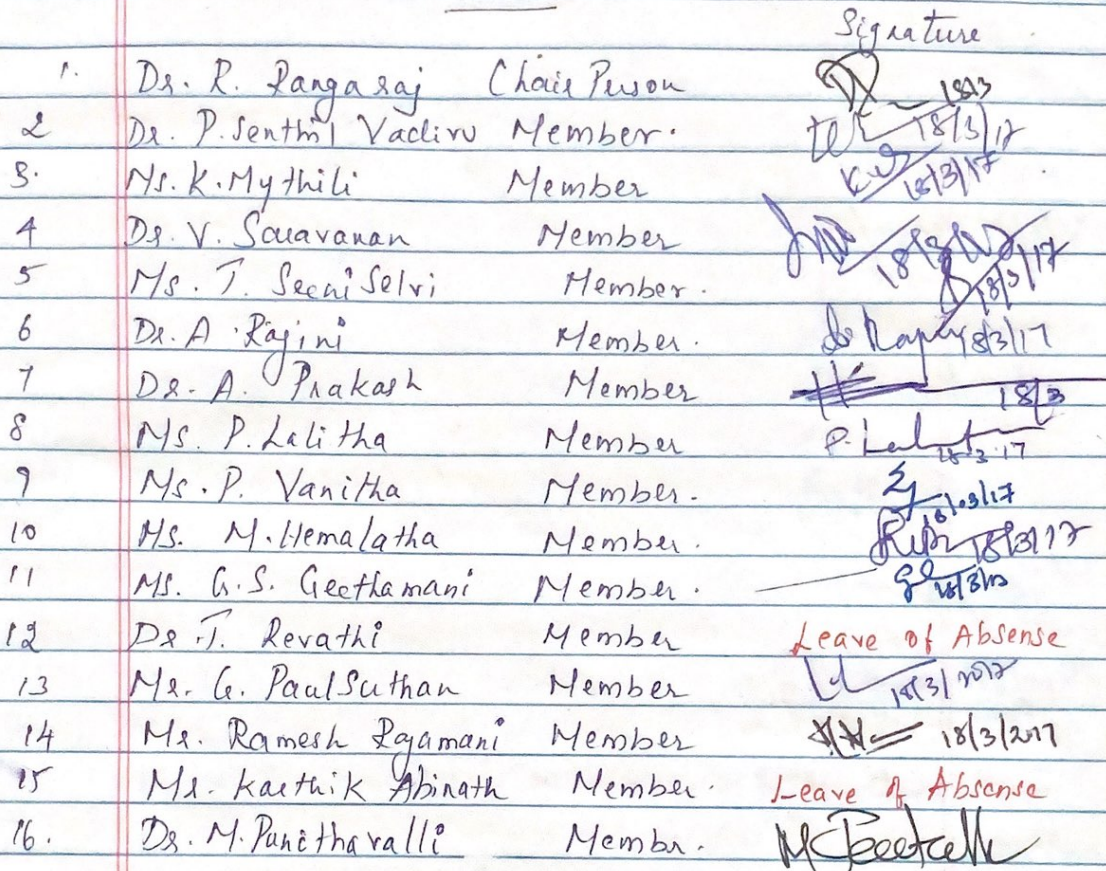 Signature
1. Dr. R. Rangaraj Chair Person 18/3
2 Dr. P. Senthil Vadivu Member. 18/3/17
3. Ms. K. Mythili Member 18/3/17
4 Dr. V. Saravanan Member 18/3/17
5 Ms. T. Seeni Selvi Member. 18/3/17
6 Dr. A. Rajini Member. 18/3/17
7 Dr. A. Prakash Member 18/3
8 Ms. P. Lalitha Member P. Lal 18.3.17
9 Ms. P. Vanitha Member. 18/03/17
10 Ms. M. Hemalatha Member. 18/3/17
11 Ms. G.S. Geethamani Member. 18/3/17
12 Dr. T. Revathi Member Leave of Absense
13 Mr. G. Paul Suthan Member 18/3/2017
14 Mr. Ramesh Rajamani Member 18/3/2017
15 Mr. Karthik Abinath Member. Leave of Absense
16. Dr. M. Punithavalli Membr.